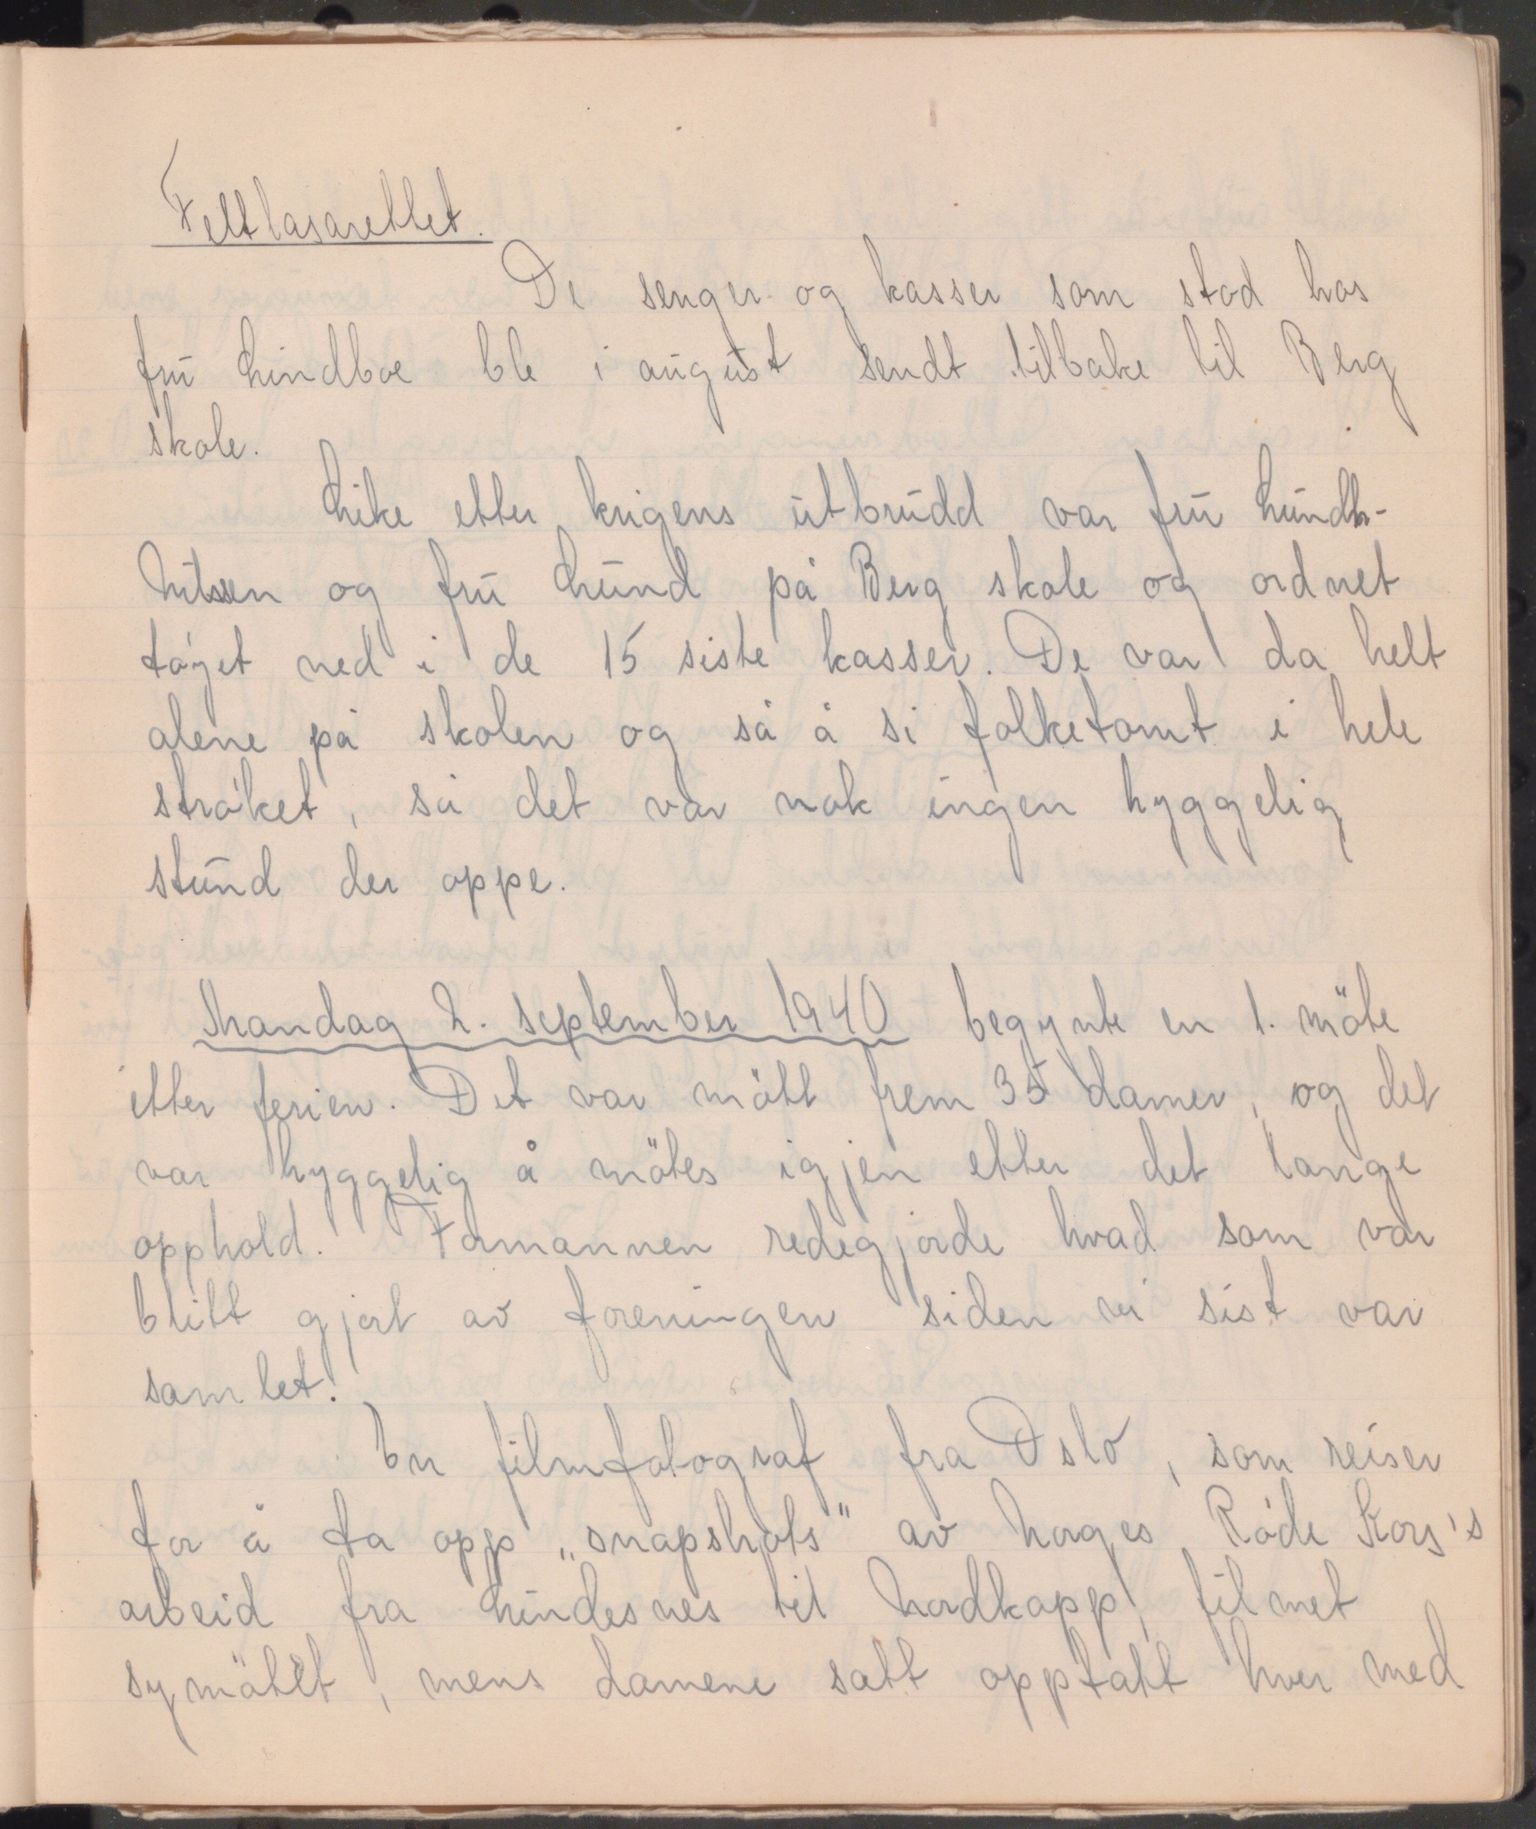 Feltlasarettet.
De senger og kasser som stod hos
fru Lindboe ble i august sendt tilbake til Berg
skole.
Like etter krigens utbrudd var fru Lundh-
Nilssen og fru Lund på Berg skole og ordnet
tøyet ned i de 15 siste kasser. De var da helt
alene på skolen og så å si folketomt i hele
strøket, så det var nok ingen hyggelig
stund der oppe.
Mandag 2. september 1940 begynte en 1. möte
etter ferien. Det var mött frem 35 damer, og det
var hyggelig å mötes igjen etter det lange
opphold. Formannen redegjorde hvad som var
blitt gjort av foreningen siden vi sist var
samlet.
En filmfotograf fra Oslo, som reiser
for å ta opp „snapshots" av Norges Røde Kors's
arbeid fra Lindesnes til Nordkapp, filmet
symötet, mens damene satt opptatt hver med